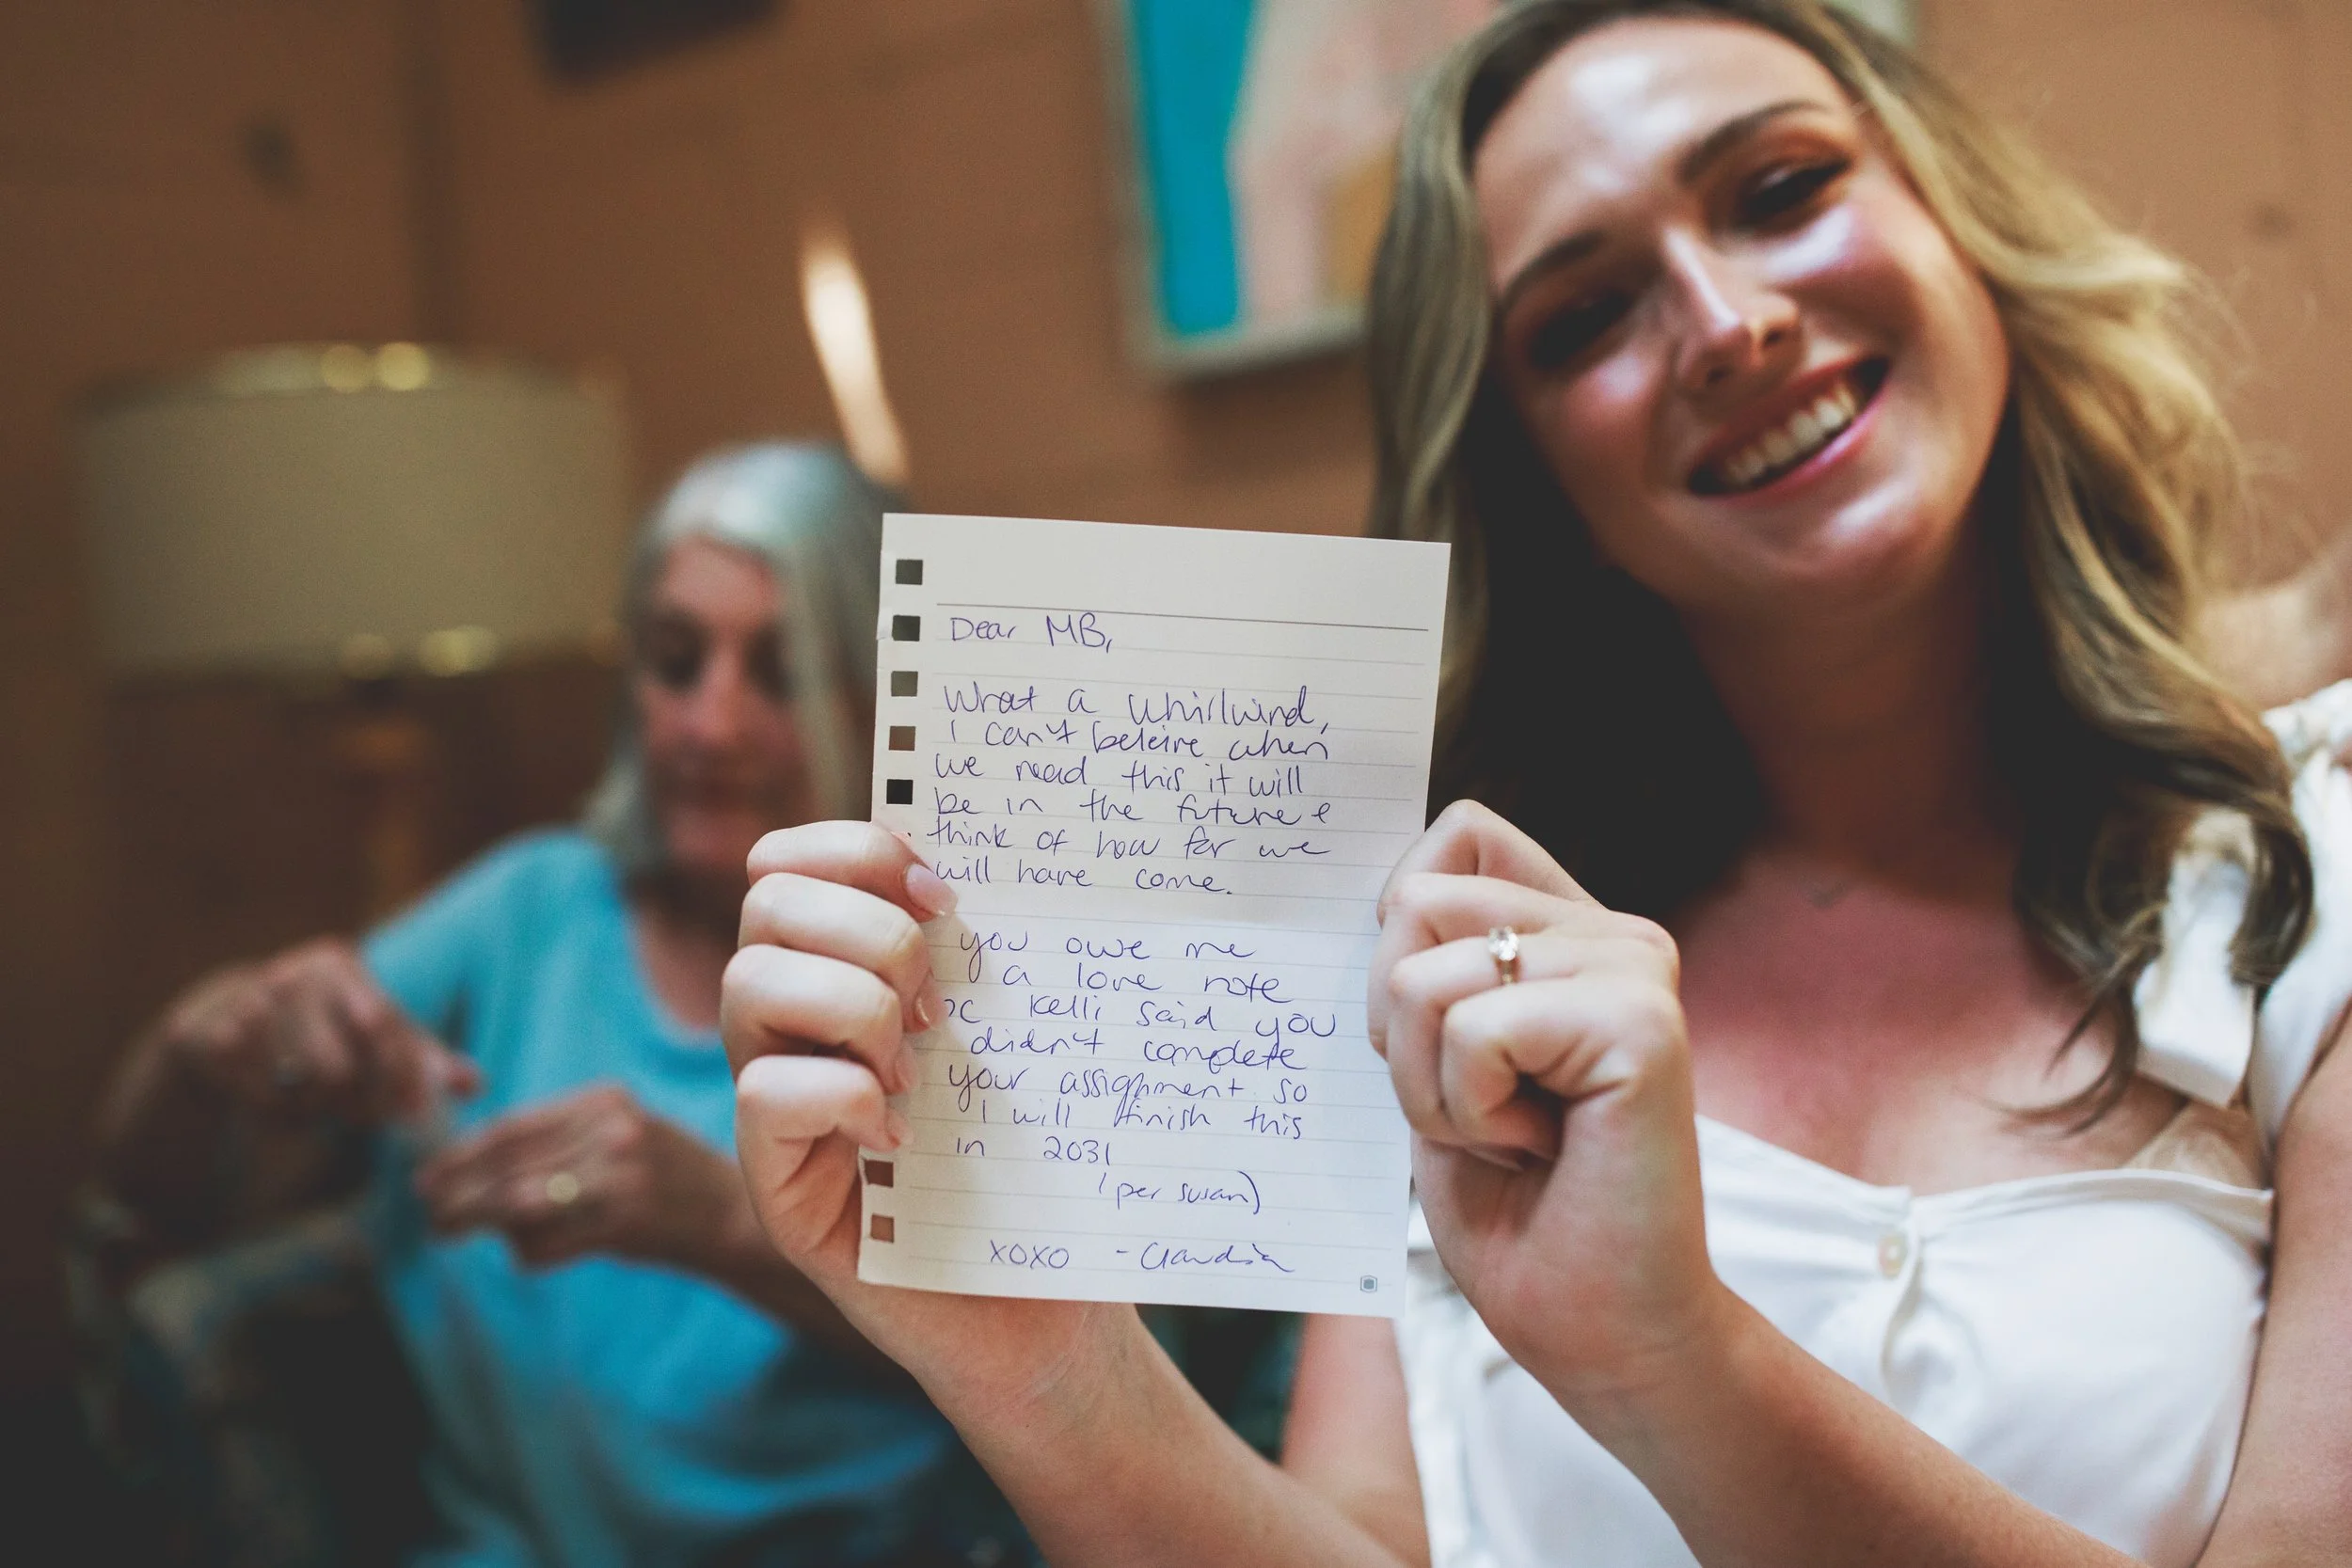 Dear MB,
What a whirlwind,
I can't beleive when
we read this it will
be in the future &
think of how far we
will have come.
you owe me
a love note
bc Kelli said you
didn't complete
your assignment so
I will finish this
in 2031
(per susan)
XOXO - Claudia